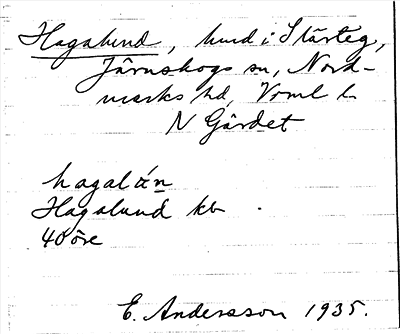 Hagalund, hmd i Stärteg,
Järnskogs sn, Nord-
marks hd, Vrml l.
N Gärdet
hagalán
Hagalund kb
40 öre
E. Andersson 1935.